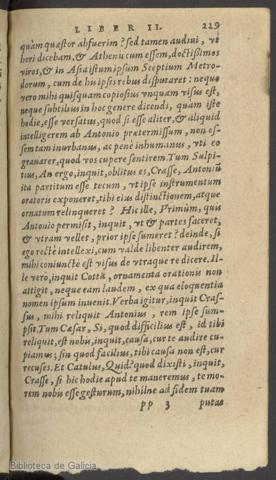 LIBER II. 229
quàm quæstor abfuerim? sed tamen audiui, vt
heri dicebam, & Athenis cum essem, doctissimos
viros, & in Asia istum ipsum Sceptium Metro-
dorum, cum de his ipsis rebus disputaret: neque
vero mihi quisquam copiosius vnquam visus est,
neque subtilius in hoc genere dicendi, quam iste
hodie, esse versatus, quod si esse aliter, & aliquid
intelligerem ab Antonio prætermissum, non es-
sem tam inurbanus, ac penè inhumanus, vti eo
grauarer, quod vos cupere sentirem. Tum Sulpi-
tius, An ergo, inquit, oblitus es, Crasse, Antoniū
ita partitum esse tecum, vt ipse instrumentum
oratoris exponeret, tibi eius distinctionem, atque
ornatum relinqueret? Hic ille, Primùm, quis
Antonio permisit, inquit, vt & partes faceret,
& vtram vellet, prior ipse sumeret? deinde, si
ego rectè intellexi, cum valde libenter audirem,
mihi coniunctè est visus de vtraque re dicere. Il-
le vero, inquit Cotta, ornamenta orationis non
attigit, neque eam laudem, ex qua eloquentia
nomen ipsum inuenit. Verba igitur, inquit Cras-
sus, mihi reliquit Antonius, rem ipse sum-
psit. Tum Cæsar, Si, quod difficilius est, id tibi
reliquit, est nobis, inquit, causa, cur te audire cu-
piamus: sin quod facilius, tibi causa non est, cur
recuses. Et Catulus, Quid? quod dixisti, inquit,
Crasse, si hic hodie apud te maneremus, te mo-
rem nobis esse gesturum, nihilne ad fidem tuam
PP 3 putas
Biblioteca de Galicia